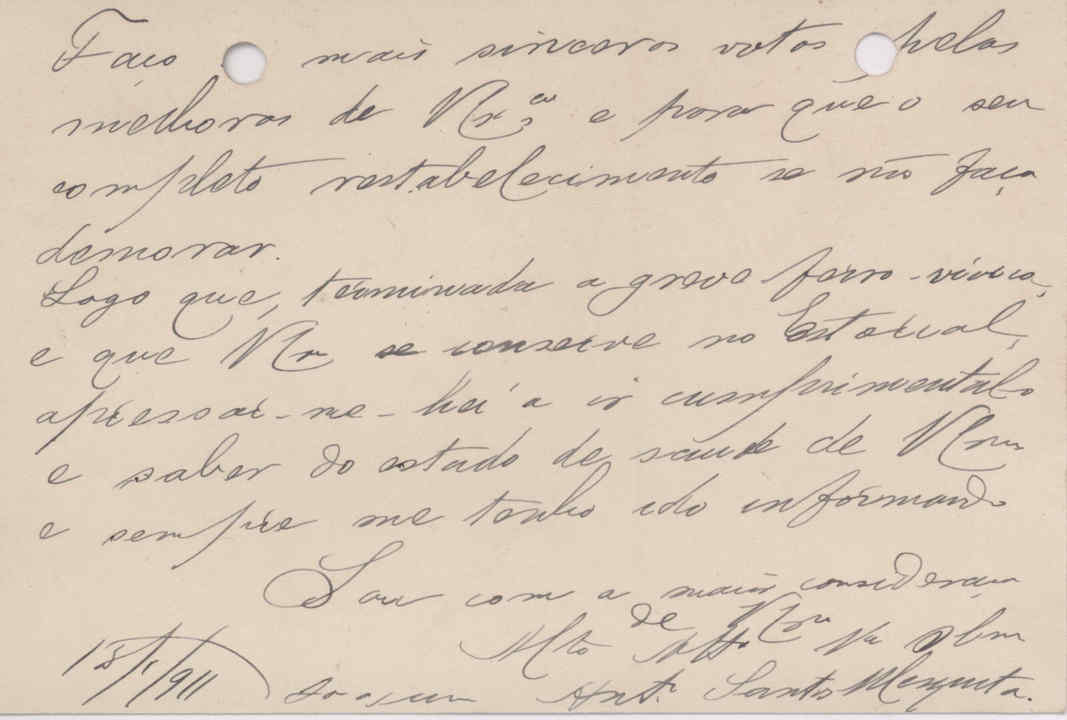 Faço mais sinceros votos pelas
melhoras de V. Ex.cia e para que o seu
completo restabelecimento se não faça
demorar.
Logo que, terminada a greve ferro-viária,
e que V. Ex se conserve no Estoril,
apressar-me-hei a ir cumprimental-o
e saber do estado de saude de V. Ex
e sempre me tenho ido informando
Sou com a maior consideração
de V. Ex
Mto Atto Vr Obr
15/1/911 Joaquim Ant. Santos Mesquita.